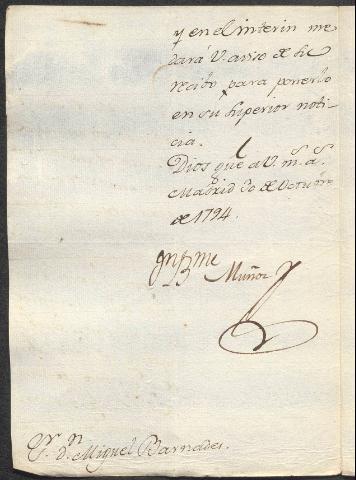 y en el interin me
dará V. aviso de su
recibo para ponerlo
en su superior noti-
cia.
Dios gue a V. m.s a.s
Madrid 30 de Octubre
de 1794.
Jn Bme Muñoz
Sr. Dn. Miguel Barnades.